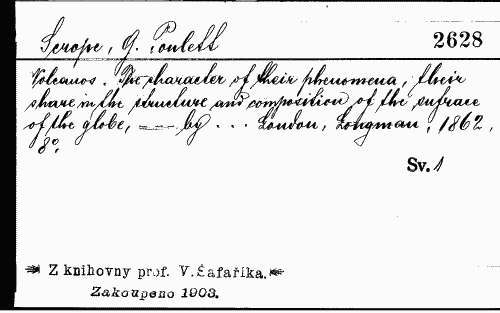 Scrope, G. Poulett
2628
Volcanos. The character of their phenomena, their
share in the structure and composition of the surface
of the globe, —— by ... London, Longman, 1862,
8°.
Sv. 1
Z knihovny prof. V. Šafaříka.
Zakoupeno 1903.